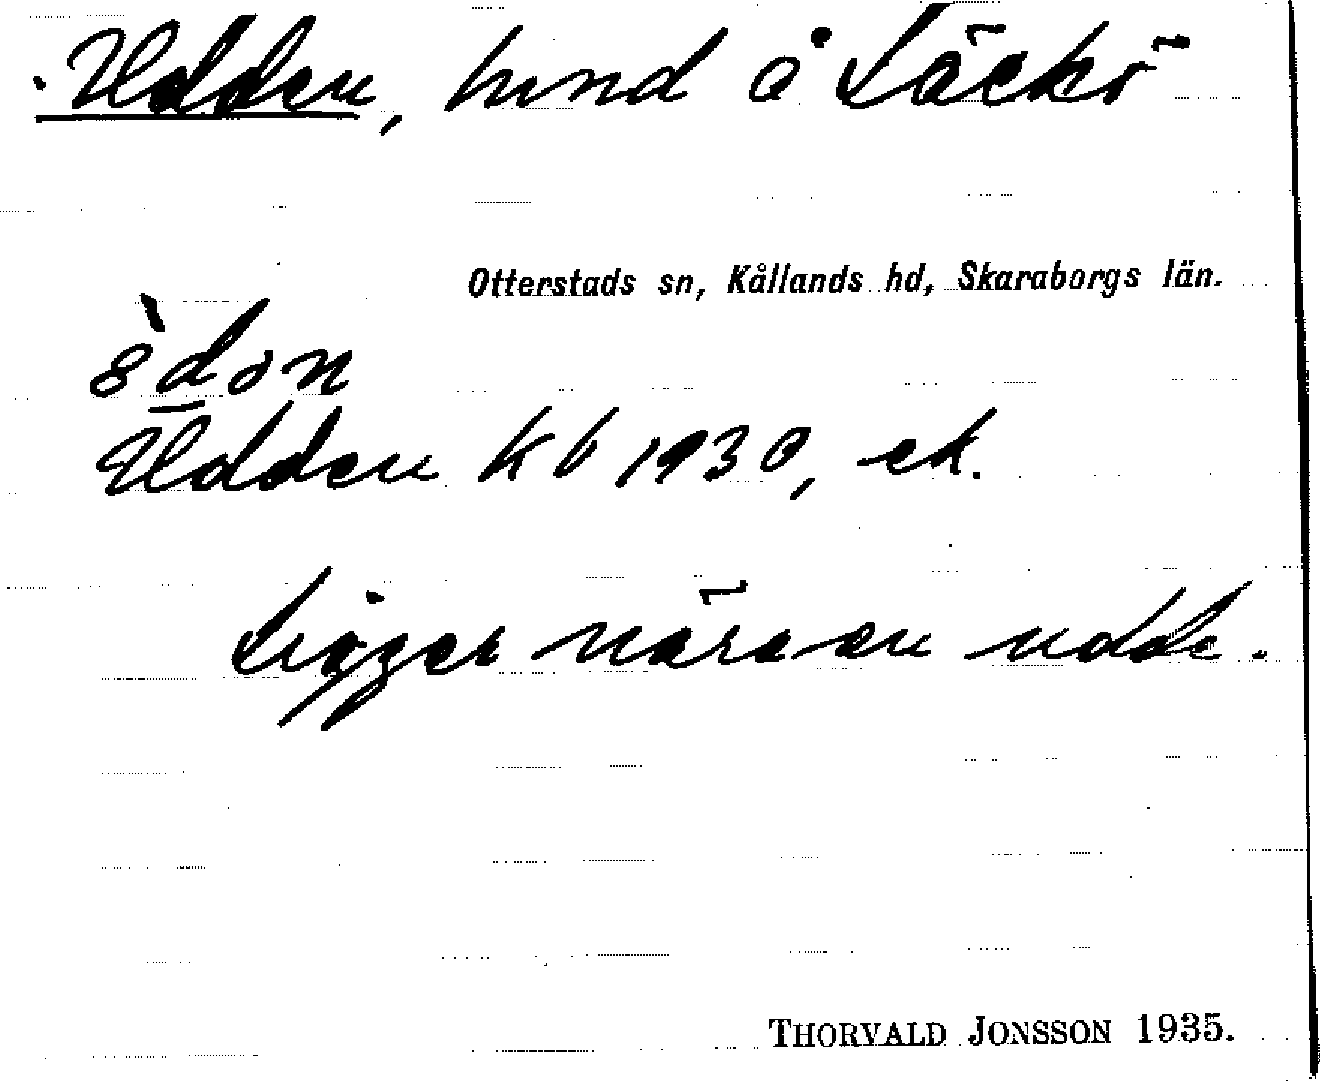 Udden, hmnd å Läckö
Otterstads sn, Kållands hd, Skaraborgs län.
8̀don
Udden Kb 1930, ek.
Ligger nära en udde.
THORVALD JONSSON 1935.